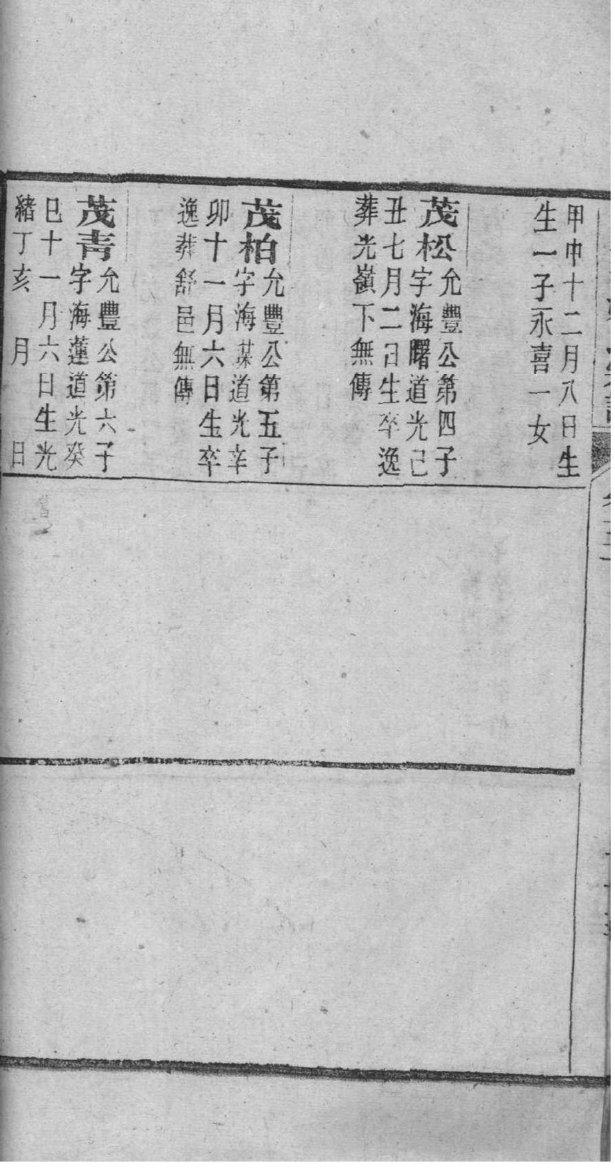 甲申十二月八日生
生一子永喜一女
茂松允豐公第四子
字海曙道光己
丑七月二日生卒逸
葬光嶺下無傳
茂柏允豐公第五子
字海謀道光辛
卯十一月六日生卒
逸葬舒邑無傳
茂青允豐公第六子
字海蓮道光癸
巳十一月六日生光
緒丁亥　月　　日